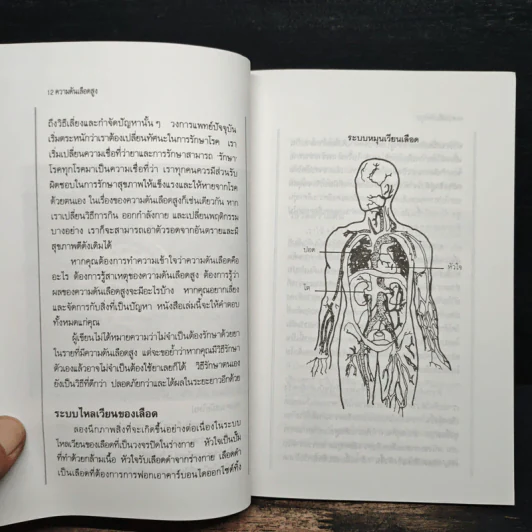 12 ความดันเลือดสูง
ถึงวิธีเลี่ยงและกำจัดปัญหานั้น ๆ วงการแพทย์ปัจจุบัน
เริ่มตระหนักว่าเราต้องเปลี่ยนทัศนะในการรักษาโรค เรา
เริ่มเปลี่ยนความเชื่อที่ว่ายาและการรักษาสามารถ รักษา
โรคทุกโรคมาเป็นความเชื่อที่ว่า เราทุกคนควรมีส่วนรับ
ผิดชอบในการรักษาสุขภาพให้แข็งแรงและให้หายจากโรค
ด้วยตนเอง ในเรื่องของความดันเลือดสูงก็เช่นเดียวกัน หาก
เราเปลี่ยนวิธีการกิน ออกกำลังกาย และเปลี่ยนพฤติกรรม
บางอย่าง เราก็จะสามารถเอาตัวรอดจากอันตรายและมี
สุขภาพดีดังเดิมได้
หากคุณต้องการทำความเข้าใจว่าความดันเลือดคือ
อะไร ต้องการรู้สาเหตุของความดันเลือดสูง ต้องการรู้ว่า
ผลของความดันเลือดสูงจะมีอะไรบ้าง หากคุณอยากเลี่ยง
และจัดการกับสิ่งที่เป็นปัญหา หนังสือเล่มนี้จะให้คำตอบ
ทั้งหมดแก่คุณ
ผู้เขียนไม่ได้หมายความว่าไม่จำเป็นต้องรักษาด้วยยา
ในรายที่มีความดันเลือดสูง แต่จะขอย้ำว่าหากคุณมีวิธีรักษา
ตัวเองแล้วอาจไม่จำเป็นต้องใช้ยาเลยก็ได้ วิธีรักษาตนเอง
ยังเป็นวิธีที่ดีกว่า ปลอดภัยกว่าและได้ผลในระยะยาวอีกด้วย
ระบบไหลเวียนของเลือด
ลองนึกภาพสิ่งที่จะเกิดขึ้นอย่างต่อเนื่องในระบบ
ไหลเวียนของเลือดที่เป็นวงจรปิดในร่างกาย หัวใจเป็นปั๊ม
ที่ทำด้วยกล้ามเนื้อ หัวใจรับเลือดดำจากร่างกาย เลือดดำ
เป็นเลือดที่ต้องการการฟอกเอาคาร์บอนไดออกไซด์ทิ้ง
ระบบหมุนเวียนเลือด
ปอด
หัวใจ
ไต